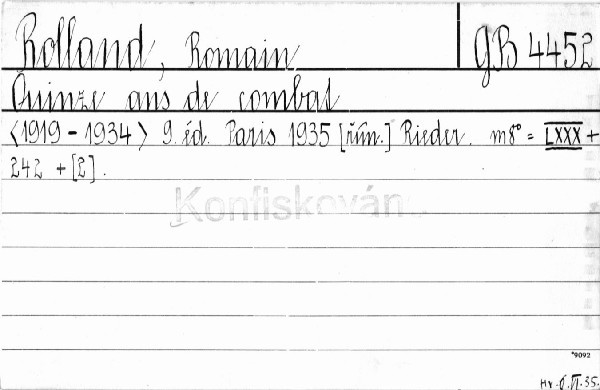 Rolland, Romain GB 4452
Quinze ans de combat
<1919 - 1934> 9. éd. Paris 1935 [řím.] Rieder. m8° = LXXX +
242 + [2].
Konfiskován
*9092
Hv. 6. VI. 35.